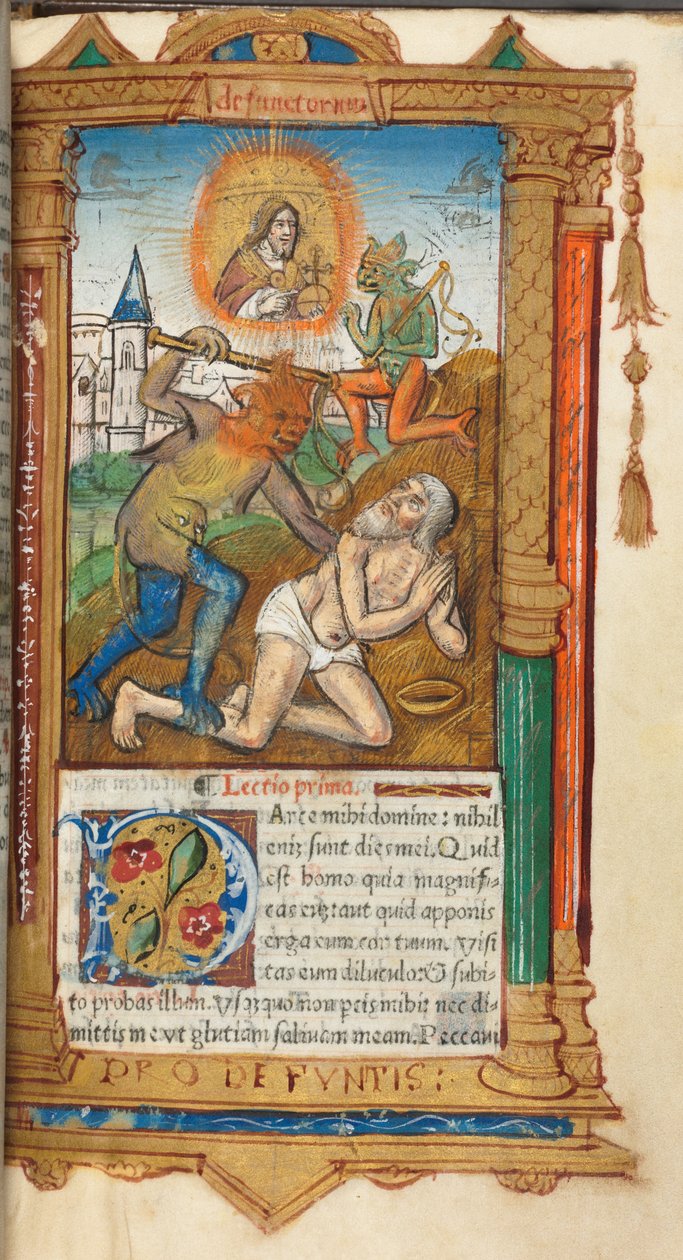 defunctorum
¶ Lectio prima
PArce mihi domine: nihil
eniz sunt dies mei. Quid
est homo quia magnifi-
cas euz: aut quid apponis
erga eum cor tuum. Visi
tas eum diluculo: & subi-
to probas illum. Vsqzquo non pcis mihi: nec di-
mittis me vt glutiam salivam meam. Peccavi
PRO DEFVNTIS: